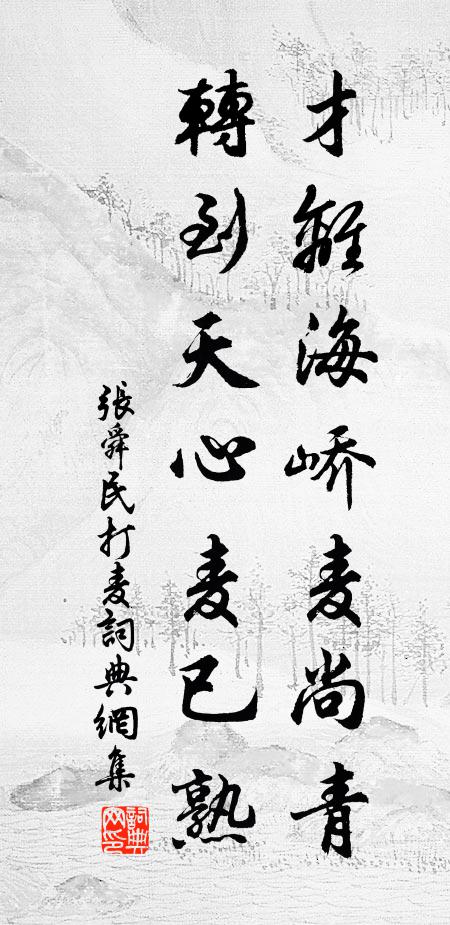 才離海峤麦尚青
轉到天心麦已熟
張舜民打麦詞典網集
詞典网印